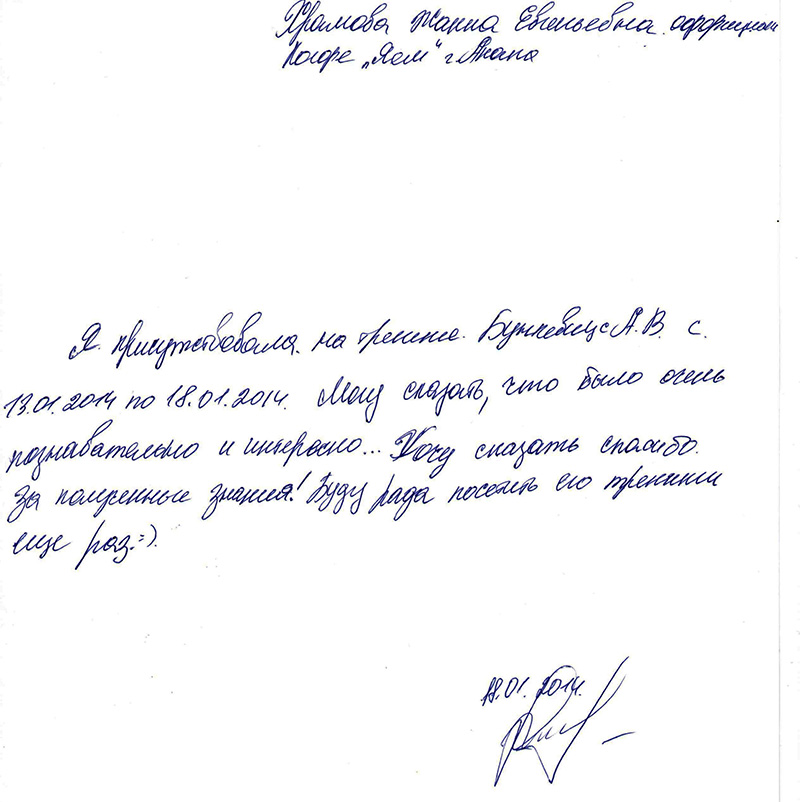 Храмова Жанна Евгеньевна. официант
Кафе „Яем“ г Анапа
Я присутствовала на тренинге Бункевич А.В. с.
13.01.2014 по 18.01.2014. Могу сказать, что было очень
познавательно и интересно... Хочу сказать спасибо.
За полученные знания! Буду рада посетить его тренинги
еще раз.=).
18.01. 2014.